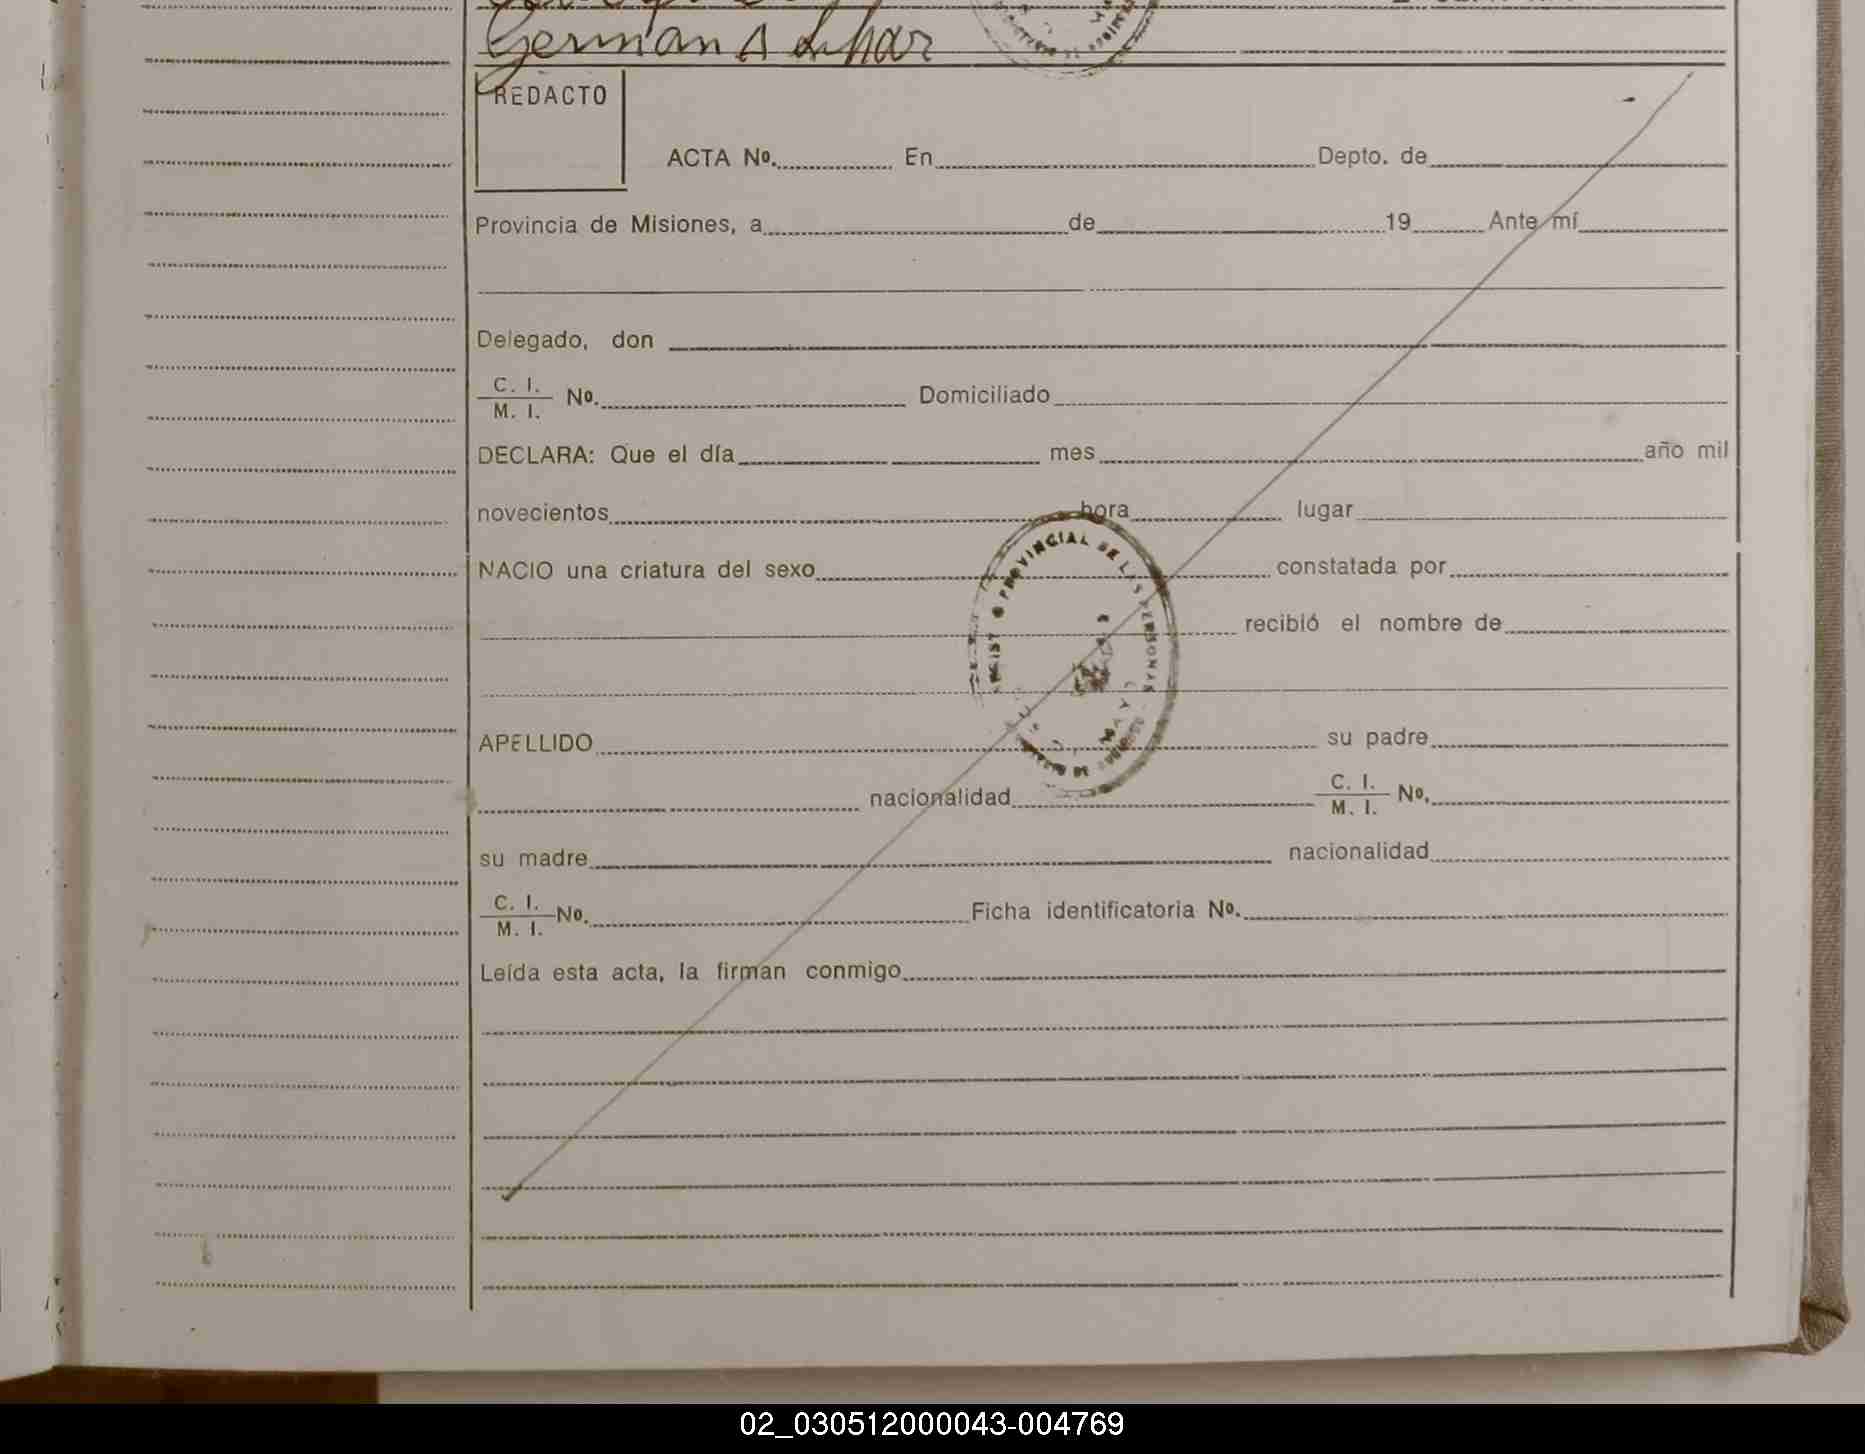 German A
REDACTO
ACTA Nº. En Depto. de
Provincia de Misiones, a de 19 Ante mí
Delegado, don
C. I.
M. I. Nº. Domiciliado
DECLARA: Que el día mes año mil
novecientos hora lugar
NACIO una criatura del sexo constatada por
PROVINCIAL DE LAS PERSONAS
recibió el nombre de
APELLIDO su padre
nacionalidad C. I.
M. I. Nº.
su madre nacionalidad
C. I.
M. I. Nº. Ficha identificatoria Nº.
Leída esta acta, la firman conmigo
02_030512000043-004769